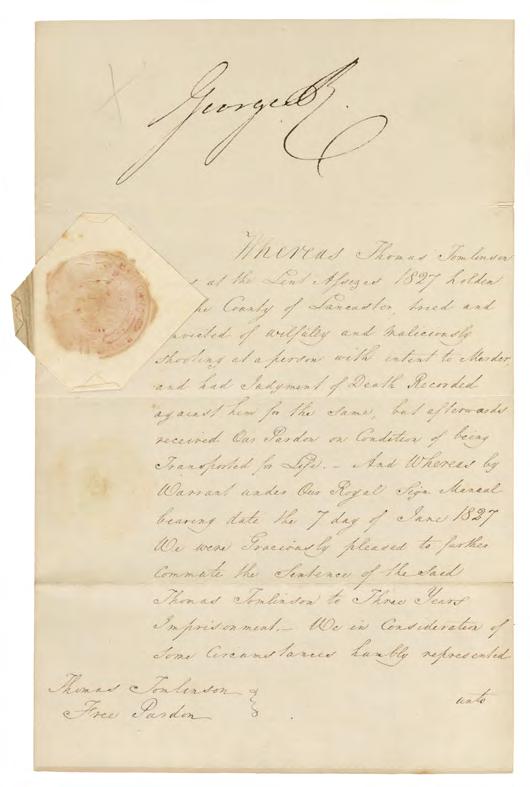 George R.
Whereas Thomas Tomlinson
at the Lent Assizes 1827 holden
he County of Lancaster, tried and
nvicted of wilfully and maliciously
Shooting at a person with intent to Murder
and had Judgment of Death Recorded
against him for the same, but afterwards
received Our Pardon on Condition of being
Transported for Life. — And Whereas by
Warrant under Our Royal Sign Manual
bearing date the 7 day of June 1827
We were Graciously pleased to further
commute the Sentence of the said
Thomas Tomlinson to Three Years
Imprisonment. — We in Consideration of
some Circumstances humbly represented
unto
Thomas Tomlinson
Free Pardon